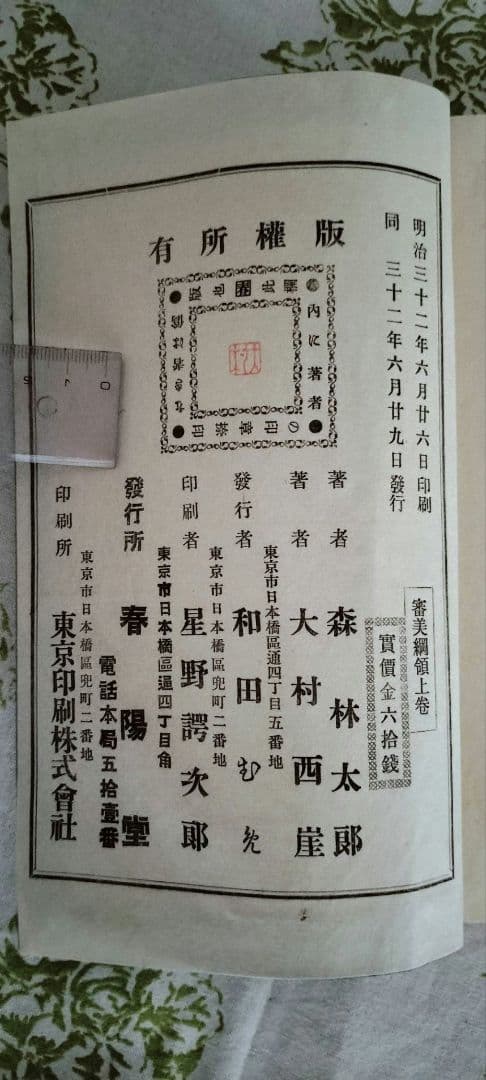 明治三十二年六月廿六日印刷
同 三十二年六月廿九日發行
審美綱領上卷
實價金六拾錢
版權所有
此欄
内に著者
の印章捺印
なき者は僞
版也
著者 森林太郎
著者 大村西崖
東京市日本橋區通四丁目五番地
發行者 和田むめ
東京市日本橋區兜町二番地
印刷者 星野諤次郎
東京市日本橋區通四丁目角
發行所 春陽堂
電話本局五拾壹番
東京市日本橋區兜町二番地
印刷所 東京印刷株式會社
0 1